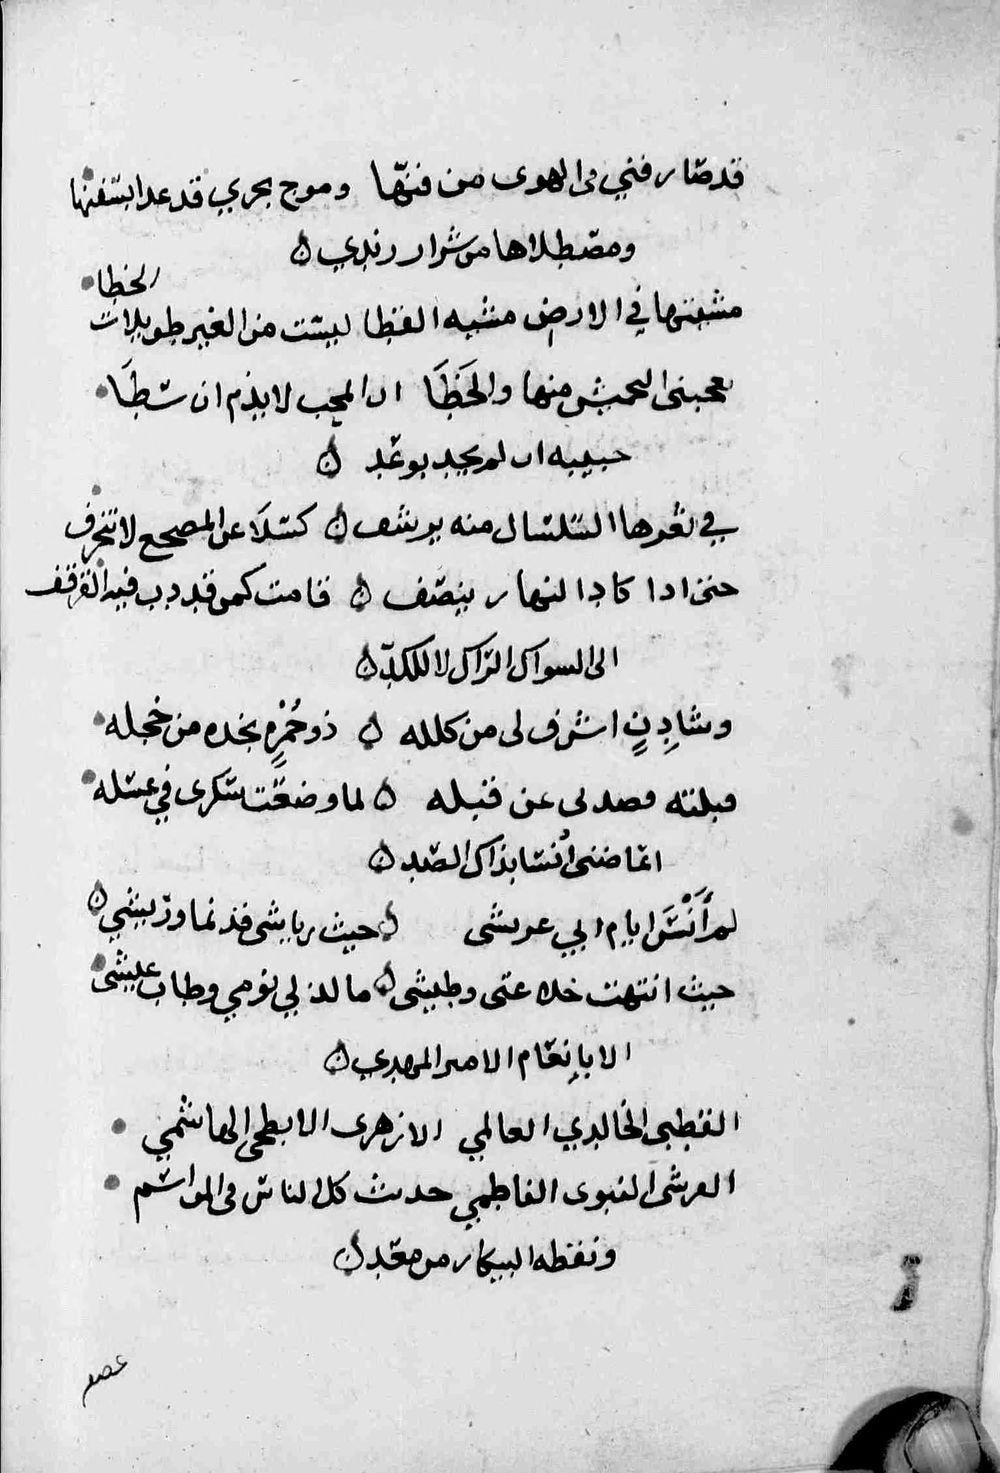 قد صار فني في الهوى من فنها وموج بحري قد عدا بسفنها
ومصطلاها من شرار زندي
الخطا
مشيتها في الارض مشيه القطا ليست من الغير طويلات
يعجبني التحميش منها والخطا ان المحب لا يذم ان سطا
حبيبه ان لم يجد بوعد
في ثغرها السلسال منه يرشف كسلا عن المصحع لا تنحرف
حتى اذا كاد النهار ينصف قامت كمن قد دب فيه القرقف
الى السواك الراك لا للكد
وشادنٍ اشرف لي من كلله ذو حمرةٍ بخده من خجله
قبلته فصد لي عن قبله لما وضعت سكرى في عسله
اعاضني أنسا بذاك الصد
لم أنس ايام ابي عريشي حيث رياشي قد نما وريشي
حيث انتهت خلاعتى وطيشى ما لذ لي نومي وطاب عيشى
الا بإنعام الامير المهدي
القطبى الخالدي العالمي الازهرى الابطحى الهاشمي
القرشى النبوى الفاطمي حديث كل الناس في المواسم
ونقطه البيكار من معد